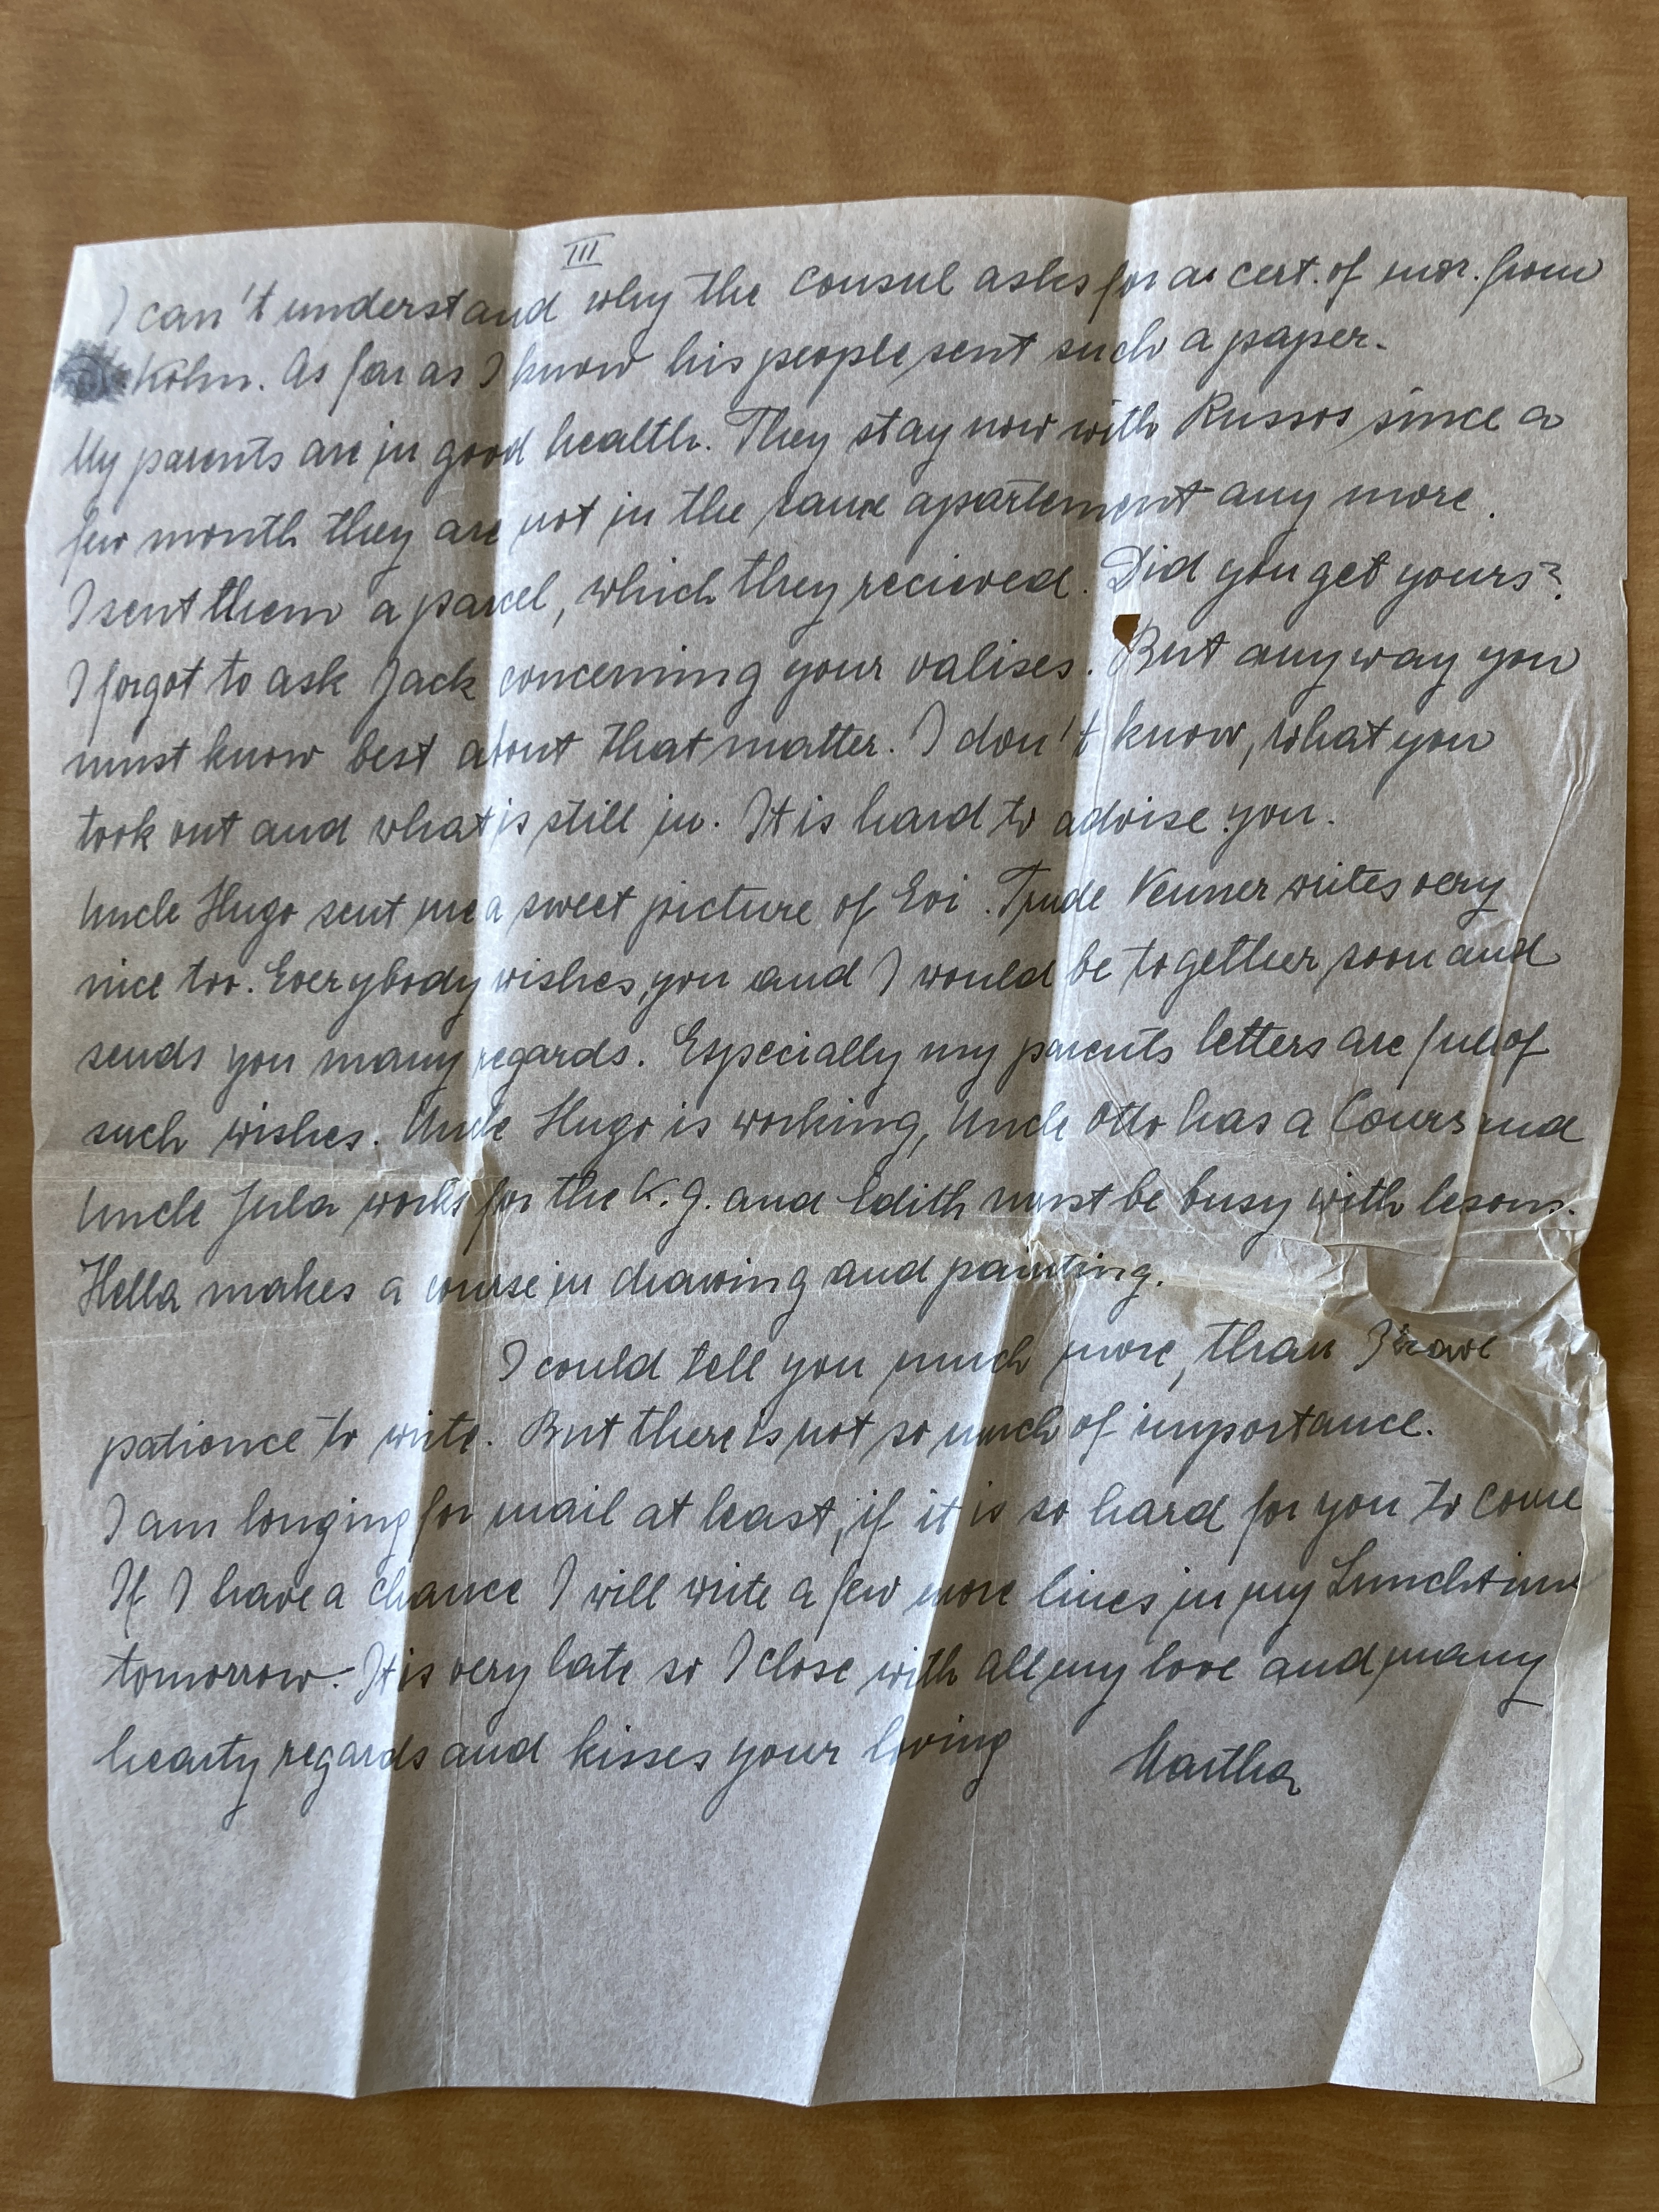 III
I can't understand why the consul asks for a cert. of mor. from
Köln. As far as I know his people sent such a paper.
My parents are in good health. They stay now with Russos since a
few month they are not in the same apartement any more.
I sent them a parcel, which they recieved. Did you get yours?
I forgot to ask Jack concerning your valises. But any way you
must know best about that matter. I don't know, what you
took out and what is still in. It is hard to advise you.
Uncle Hugo sent me a sweet picture of Evi. Trude Venner writes very
nice too. Everybody wishes, you and I would be together soon and
sends you many regards. Especially my parents letters are full of
such wishes. Uncle Hugo is working, Uncle Otto has a Cours and
Uncle Jula works for the K.g. and Edith must be busy with lesons.
Hella makes a course in drawing and painting.
I could tell you much more, than I have
patience to write. But there is not so much of importance.
I am longing for mail at least, if it is so hard for you to come
If I have a chance I will write a few more lines in my Lunchtime
tomorrow. It is very late so I close with all my love and many
hearty regards and kisses your loving Martha